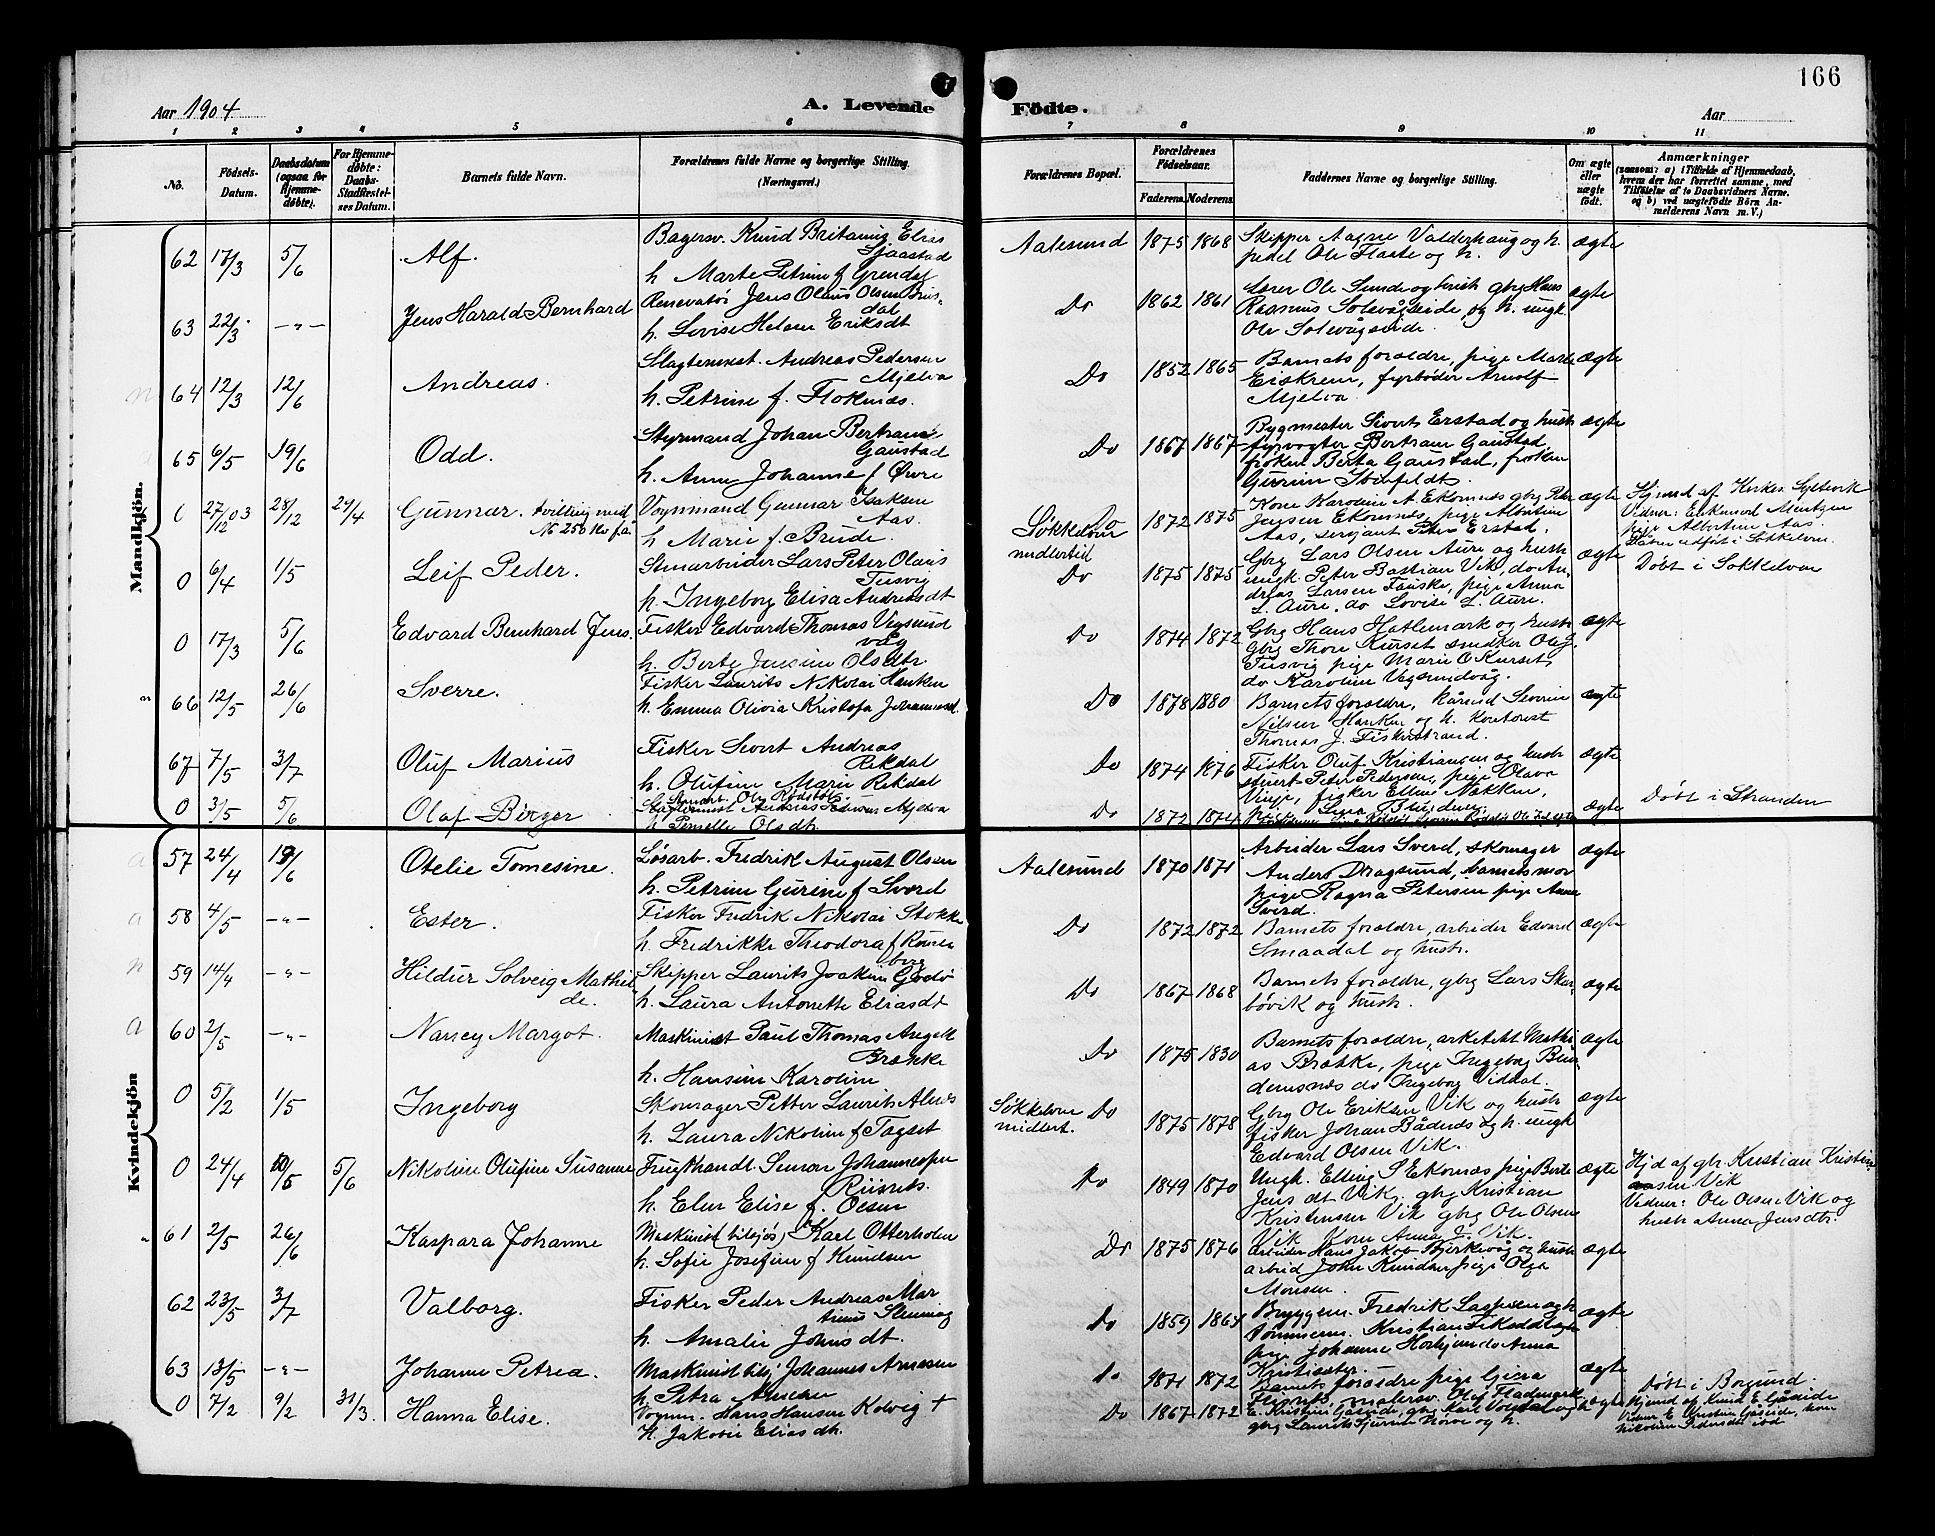 166
Aar 1904
A. Levende
Födte.
Aar
1 2 3 4 5 6 7 8 9 10 11
No.
Födsels-Datum.
Daabsdatum (ogsaa for Hjemmedöbte).
For Hjemmedöbte: Daabs-Stadfæstelses Datum.
Barnets fulde Navn.
Forældrenes fulde Navne og borgerlige Stilling. (Næringsvei.)
Forældrenes Bopæl.
Forældrenes Födselsaar.
Faderens. Moderens.
Faddernes Navne og borgerlige Stilling.
Om ægte eller uægte födt.
Anmærkninger
(saasom: a) i Tilfælde af Hjemmedaab, hvem der har forrettet samme, med Tilföielse af to Daabsvidners Navne. og b) ved uægtefödte Börn Anmelderens Navn m. V.)
Mandkjön.
62 17/3 5/6 Alf. Bagersv. Knud Britanius Elias Sjaastad
h. Marte Petrine f Grendal
Aalesund 1875 1868 Skipper Aagne Valderhaug og h. ægte
pedel Ole Flaate og h.
63 22/3 -"- Jens Harald Bernhard Renovatør Jens Olaus Olsen Brusdal
h. Lovise Helene Eriksdt
Do 1862 1861 Lærer Ole Sunde og hustr gbrg Hans ægte
Rasmus Solevågseide og h. ungk
Ole Solevågseide.
64 12/3 12/6 Andreas. Slagtermest. Andreas Pedersen Mjelva
h. Petrine f. Floknæs.
Do 1852 1865 Barnets forældre, pige Marte ægte
Eiskrem, fyrbøder Arnolf
Mjelva.
65 6/5 19/6 Odd. Styrmand Johan Bertram Gaustad
h. Anna Johanne f Øvre
Do 1867 1867 Bygmester Sivert Erstad og hustr ægte
fyrvogter Bertram Gaustad
frøken Berta Gaustad, frøken
Gurine Steinfeldt.
0 27/12 03 28/12 24/4 Gunnar. tvilling med
No 258 Ho f.å. Vognmand Gunnar Isaksen Aas
h Marie f. Brude.
Søkkelven Do
midlertid 1872 1875 Kone Karoline A. Ekornæs gbrg Peter ægte
Jensen Ekornæs, pige Albertine
Aas, sersjant Peter Erstad.
Hjemd af Herken Syltevik
Vidner: Enkemad Mentzen
pige Albertine Aas.
0 6/4 1/5 Leif Peder. Stenarbeider Lars Peter Olaus Tusvig
h. Ingeborg Elisa Andreasdt
Do 1875 1875 Gbrg Lars Olsen Aure og hustr ægte
ungk. Peter Bastian Vik, do Andreas Larsen Fauske, pige Anna
L. Aure, do Lovise L. Aure.
Døbt i Søkkelven
0 17/3 5/6 Edvard Bernhard Jens. Fisker Edvard Thomas Vegsund våg
h. Berte Jensine Olsdtr
Do 1874 1872 Gbrg Hans Hatlemark og hustr ægte
gbrg Thore Kurset snedker Ole J.
Tusvig pige Marie O Kurset,
do Karoline Vegsundvåg.
66 12/5 26/6 Sverre. Fisker Laurits Nikolai Hanken
h. Emma Olivia Kristofa Johannesd.
Do 1878 1880 Barnets forældre, kårmd Severin ægte
Nilsen Hanken og h. kontorist
Thomas J. Fiskerstrand.
67 7/5 3/7 Oluf Marius Fisker Sivert Andreas Rekdal
h. Olufine Marie Rekdal
Do 1874 1876 Fisker Oluf Kristiansen og hustr ægte
stuert Peter Pedersen, pige Olava
Vinje, fisker Elling Nakken,
0 3/5 5/6 Olaf Birger Ole Rødstøl
h Pernelle Olsdt.
Do 1872 1874 ægte
Døbt i Stranden
Kvindekjön
57 24/4 19/6 Otelie Tomesine. Løsarb. Fredrik August Olsen
h. Petrine Gurine f Sverd
Aalesund 1870 1871 Arbeider Lars Sverd, skomager ægte
Anders Dragsund, barnets mor
pige Ragna Petersen pige Anna
Sverd.
58 4/5 -"- Ester. Fisker Fredrik Nikolai Stokke
h. Fredrikke Theodora f Romeborg
Do 1872 1872 Barnets forældre, arbeider Edvard ægte
Smaadal og hustr.
59 14/4 -"- Hildur Solveig Mathilde. Skipper Laurits Joakim Godø
h. Laura Antonette Eliasdt
Do 1867 1868 Barnets forældre, gbrg Lars Skarbøvik og hustr. ægte
60 2/5 -"- Nancy Margot. Maskinist Paul Thomas Angell Brække
h. Hansine Karoline
Do 1875 1830 Barnets forældre, arkitekt Mathias Brække, pige Ingeborg Bundernesnæs do Ingeborg Viddal. ægte
0 5/2 1/5 Ingeborg Skomager Petter Laurits Alnæs
h. Laura Nikoline f Tagset
Søkkelven Do
midlert. 1875 1878 Gbrg Ole Eriksen Vik og hustr ægte
fisker Johan Bådsnes og h. ungk
Edvard Olsen Vik.
0 24/4 10/5 5/6 Nikoline Olufine Susanne Frugthandl. Simon Johannesen Riisnæs.
h. Elen Elise f. Olsen
Do 1849 1870 Ungk. Elling S Ekornæs pige Berte ægte
Jensdt Vik, gbrg Kristian
Kristensen Vik gbrg Ole Olsen
Vik Kone Anna J. Vik.
Hjd af gbr. Kristian Kristiansen Vik
Vidner: Ole Olsen Vik og
hustr Anna Jensdtr.
61 2/5 26/6 Kaspara Johanne Maskinist (tilsjøs) Karl Otterholm
h. Sofie Josefine f Knudsen
Do 1875 1876 arbeider Hans Jakob Bjerkevåg og hustr ægte
arbeid John Knudsen pige Olga
Monsen.
62 23/5 3/7 Valborg. Fisker Peder Andreas Martinus Slinning
h. Amalie Johnsdt.
Do 1859 1864 Bryggem. Fredrik Laspersen og h ægte
Tømmerm. Kristian Fiksdal og h
pige Johanne Horgheim do Anna
Kristiseter.
63 13/5 -"- Johanne Petrea. Maskinist tilsj Johannes Arnesen
h. Petra Arnesen
Do 1871 1872 Barnets forældre pige Gjera ægte
0 7/2 9/2 31/3 Hanna Elise. Vognm. Hans Hansen Kolvig +
h. Jakobie Eliasdt.
Do 1867 1872 E. Kristine Gåseide, gbrg Karl Vegdal og h ægte
Døbt i Borgund.
Hjemd af Knud E Gåseide